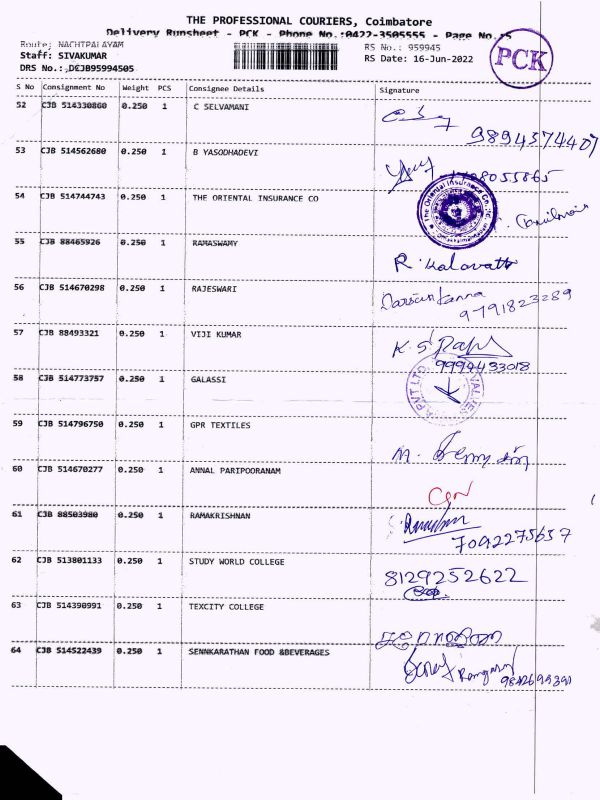 THE PROFESSIONAL COURIERS, Coimbatore
Delivery Runsheet - PCK - Phone No.:0422-3505555 - Page No.:5
Route: NACHIPALAYAM
RS No.: 959945
Staff: SIVAKUMAR
RS Date: 16-Jun-2022
DRS No.: DCJB95994505
PCK
S No Consignment No Weight PCS Consignee Details Signature
52 CJB 514330860 0.250 1 C SELVAMANI
9894374407
53 CJB 514562680 0.250 1 B YASODHADEVI
8055865
54 CJB 514744743 0.250 1 THE ORIENTAL INSURANCE CO
The Oriental Insurance Co.
55 CJB 88465926 0.250 1 RAMASWAMY
R.
56 CJB 514670298 0.250 1 RAJESWARI
9791823289
57 CJB 88493321 0.250 1 VIJI KUMAR
K. S
9994433018
58 CJB 514773757 0.250 1 GALASSI
PVT LTD VALVES
59 CJB 514796750 0.250 1 GPR TEXTILES
M.
60 CJB 514670277 0.250 1 ANNAL PARIPOORANAM
61 CJB 88503980 0.250 1 RAMAKRISHNAN
7092275657
62 CJB 513801133 0.250 1 STUDY WORLD COLLEGE
8129252622
63 CJB 514390991 0.250 1 TEXCITY COLLEGE
64 CJB 514522439 0.250 1 SENNKARATHAN FOOD &BEVERAGES